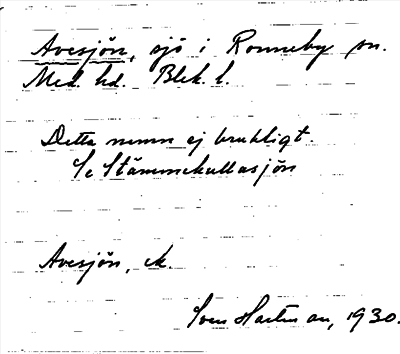 Avesjön, sjö i Ronneby sn.
Med. hd. Blek. l.
Detta namn ej brukligt.
Se Stämmekullasjön
Avesjön, ek.
Sven Hartman, 1930.